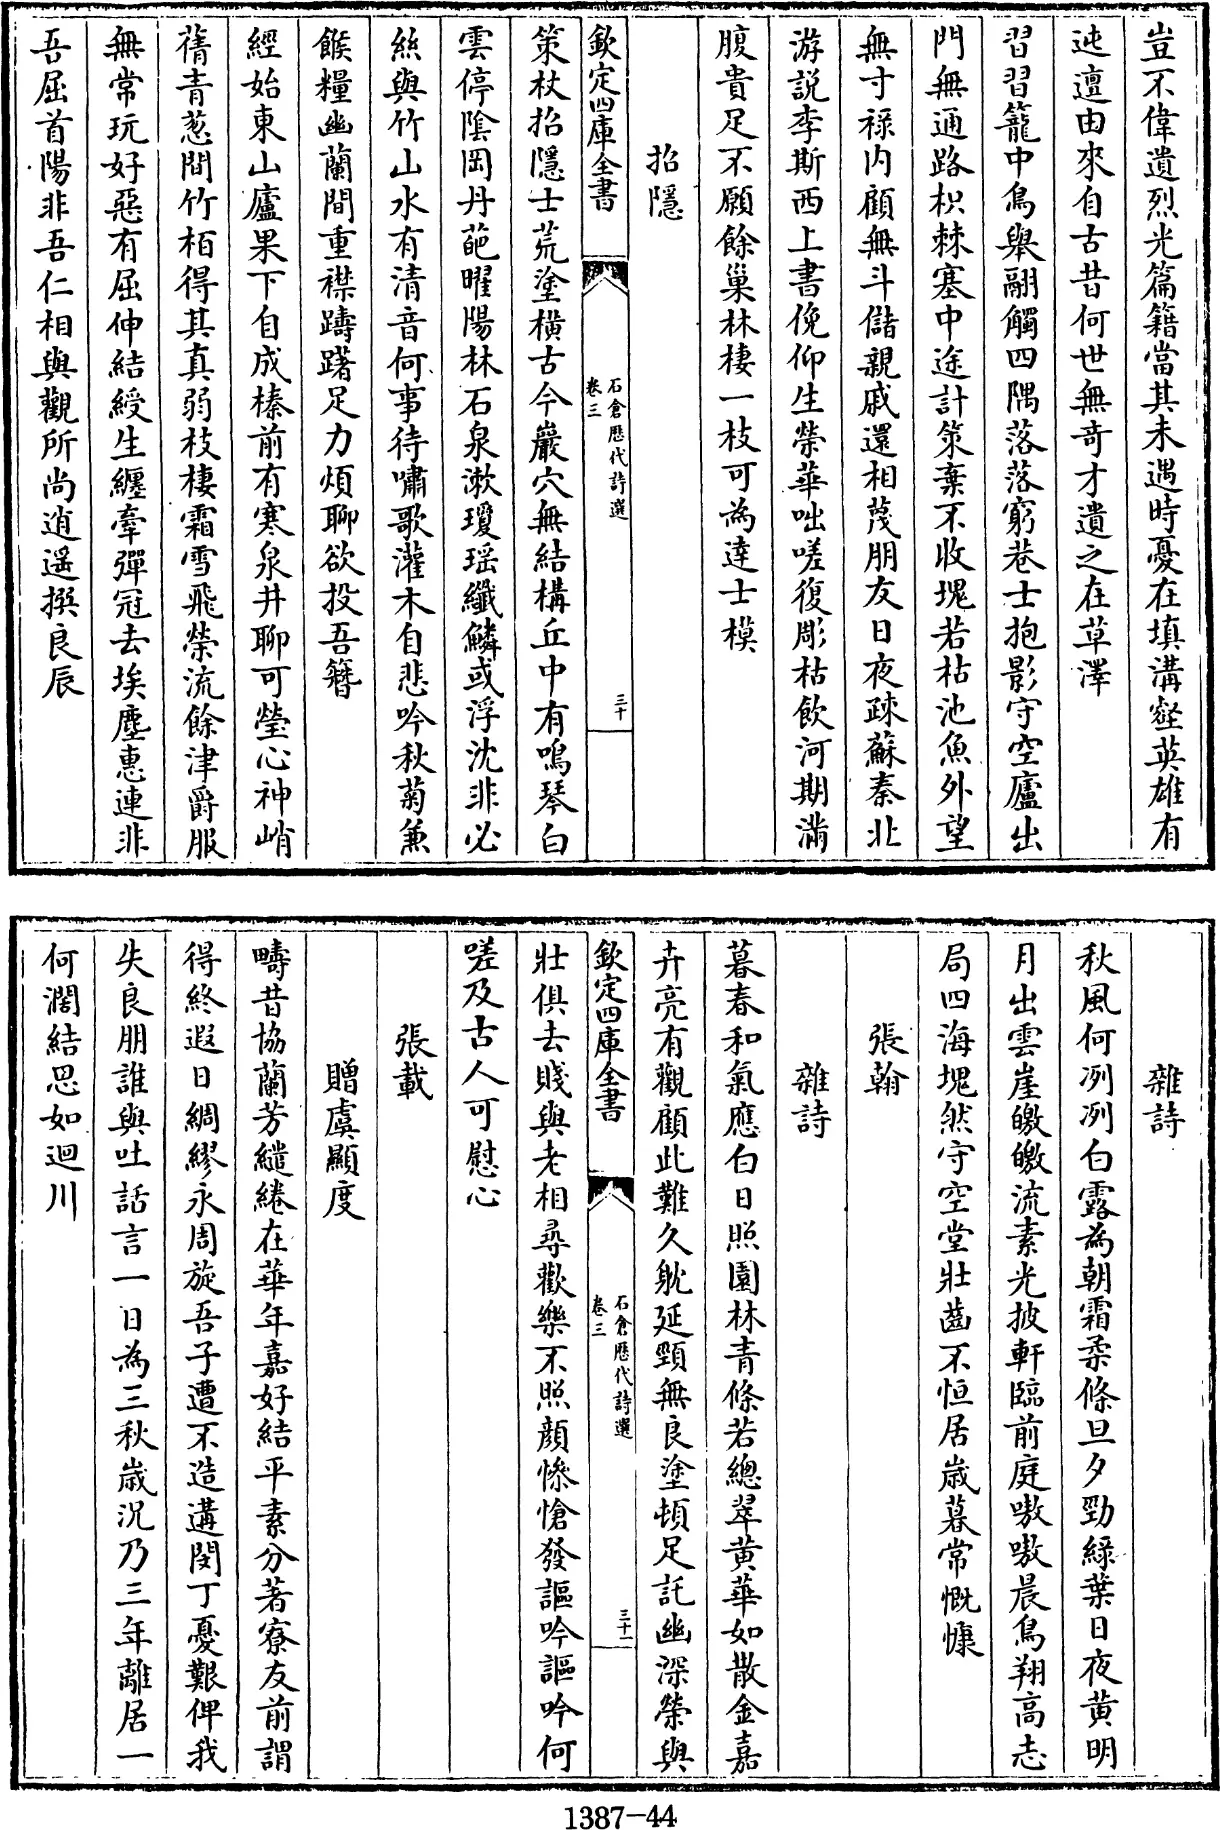 豈不偉遺烈光篇籍當其未遇時憂在填溝壑英雄有
迍邅由來自古昔何世無奇才遺之在草澤
習習籠中鳥舉翮觸四隅落落窮巷士抱影守空廬出
門無通路枳棘塞中途計策棄不收塊若枯池魚外望
無寸祿内顧無斗儲親戚還相蔑朋友日夜疎蘇秦北
游説李斯西上書俛仰生榮華咄嗟復彫枯飲河期滿
腹貴足不願餘巢林棲一枝可為達士模
招隱
欽定四庫全書
石倉歷代詩選
卷三
三十
策杖招隱士荒塗橫古今巖穴無結構丘中有鳴琴白
雲停陰岡丹葩曜陽林石泉漱瓊瑶纖鱗或浮沈非必
絲與竹山水有清音何事待嘯歌灌木自悲吟秋菊兼
餱糧幽蘭間重襟躊躇足力煩聊欲投吾簪
經始東山廬果下自成榛前有寒泉井聊可瑩心神峭
蒨青葱間竹栢得其真弱枝棲霜雪飛榮流餘津爵服
無常玩好惡有屈伸結綬生纒牽彈冠去埃塵惠連非
吾屈首陽非吾仁相與觀所尚逍遥撰良辰
雜詩
秋風何冽冽白露為朝霜柔條旦夕勁綠葉日夜黄明
月出雲崖皦皦流素光披軒臨前庭嗷嗷晨鳥翔高志
局四海塊然守空堂壯齒不恒居歲暮常慨慷
張翰
雜詩
暮春和氣應白日照園林青條若總翠黄華如散金嘉
卉亮有觀顧此難久躭延頸無良塗頓足託幽深榮與
欽定四庫全書
石倉歷代詩選
卷三
三十一
壯俱去賤與老相尋歡樂不照顔慘愴發謳吟謳吟何
嗟及古人可慰心
張載
贈虞顯度
疇昔協蘭芳繾綣在華年嘉好結平素分著寮友前謂
得終遐日綢繆永周旋吾子遭不造遘閔丁憂艱俾我
失良朋誰與吐話言一日為三秋歲況乃三年離居一
何濶結思如迴川
1387-44